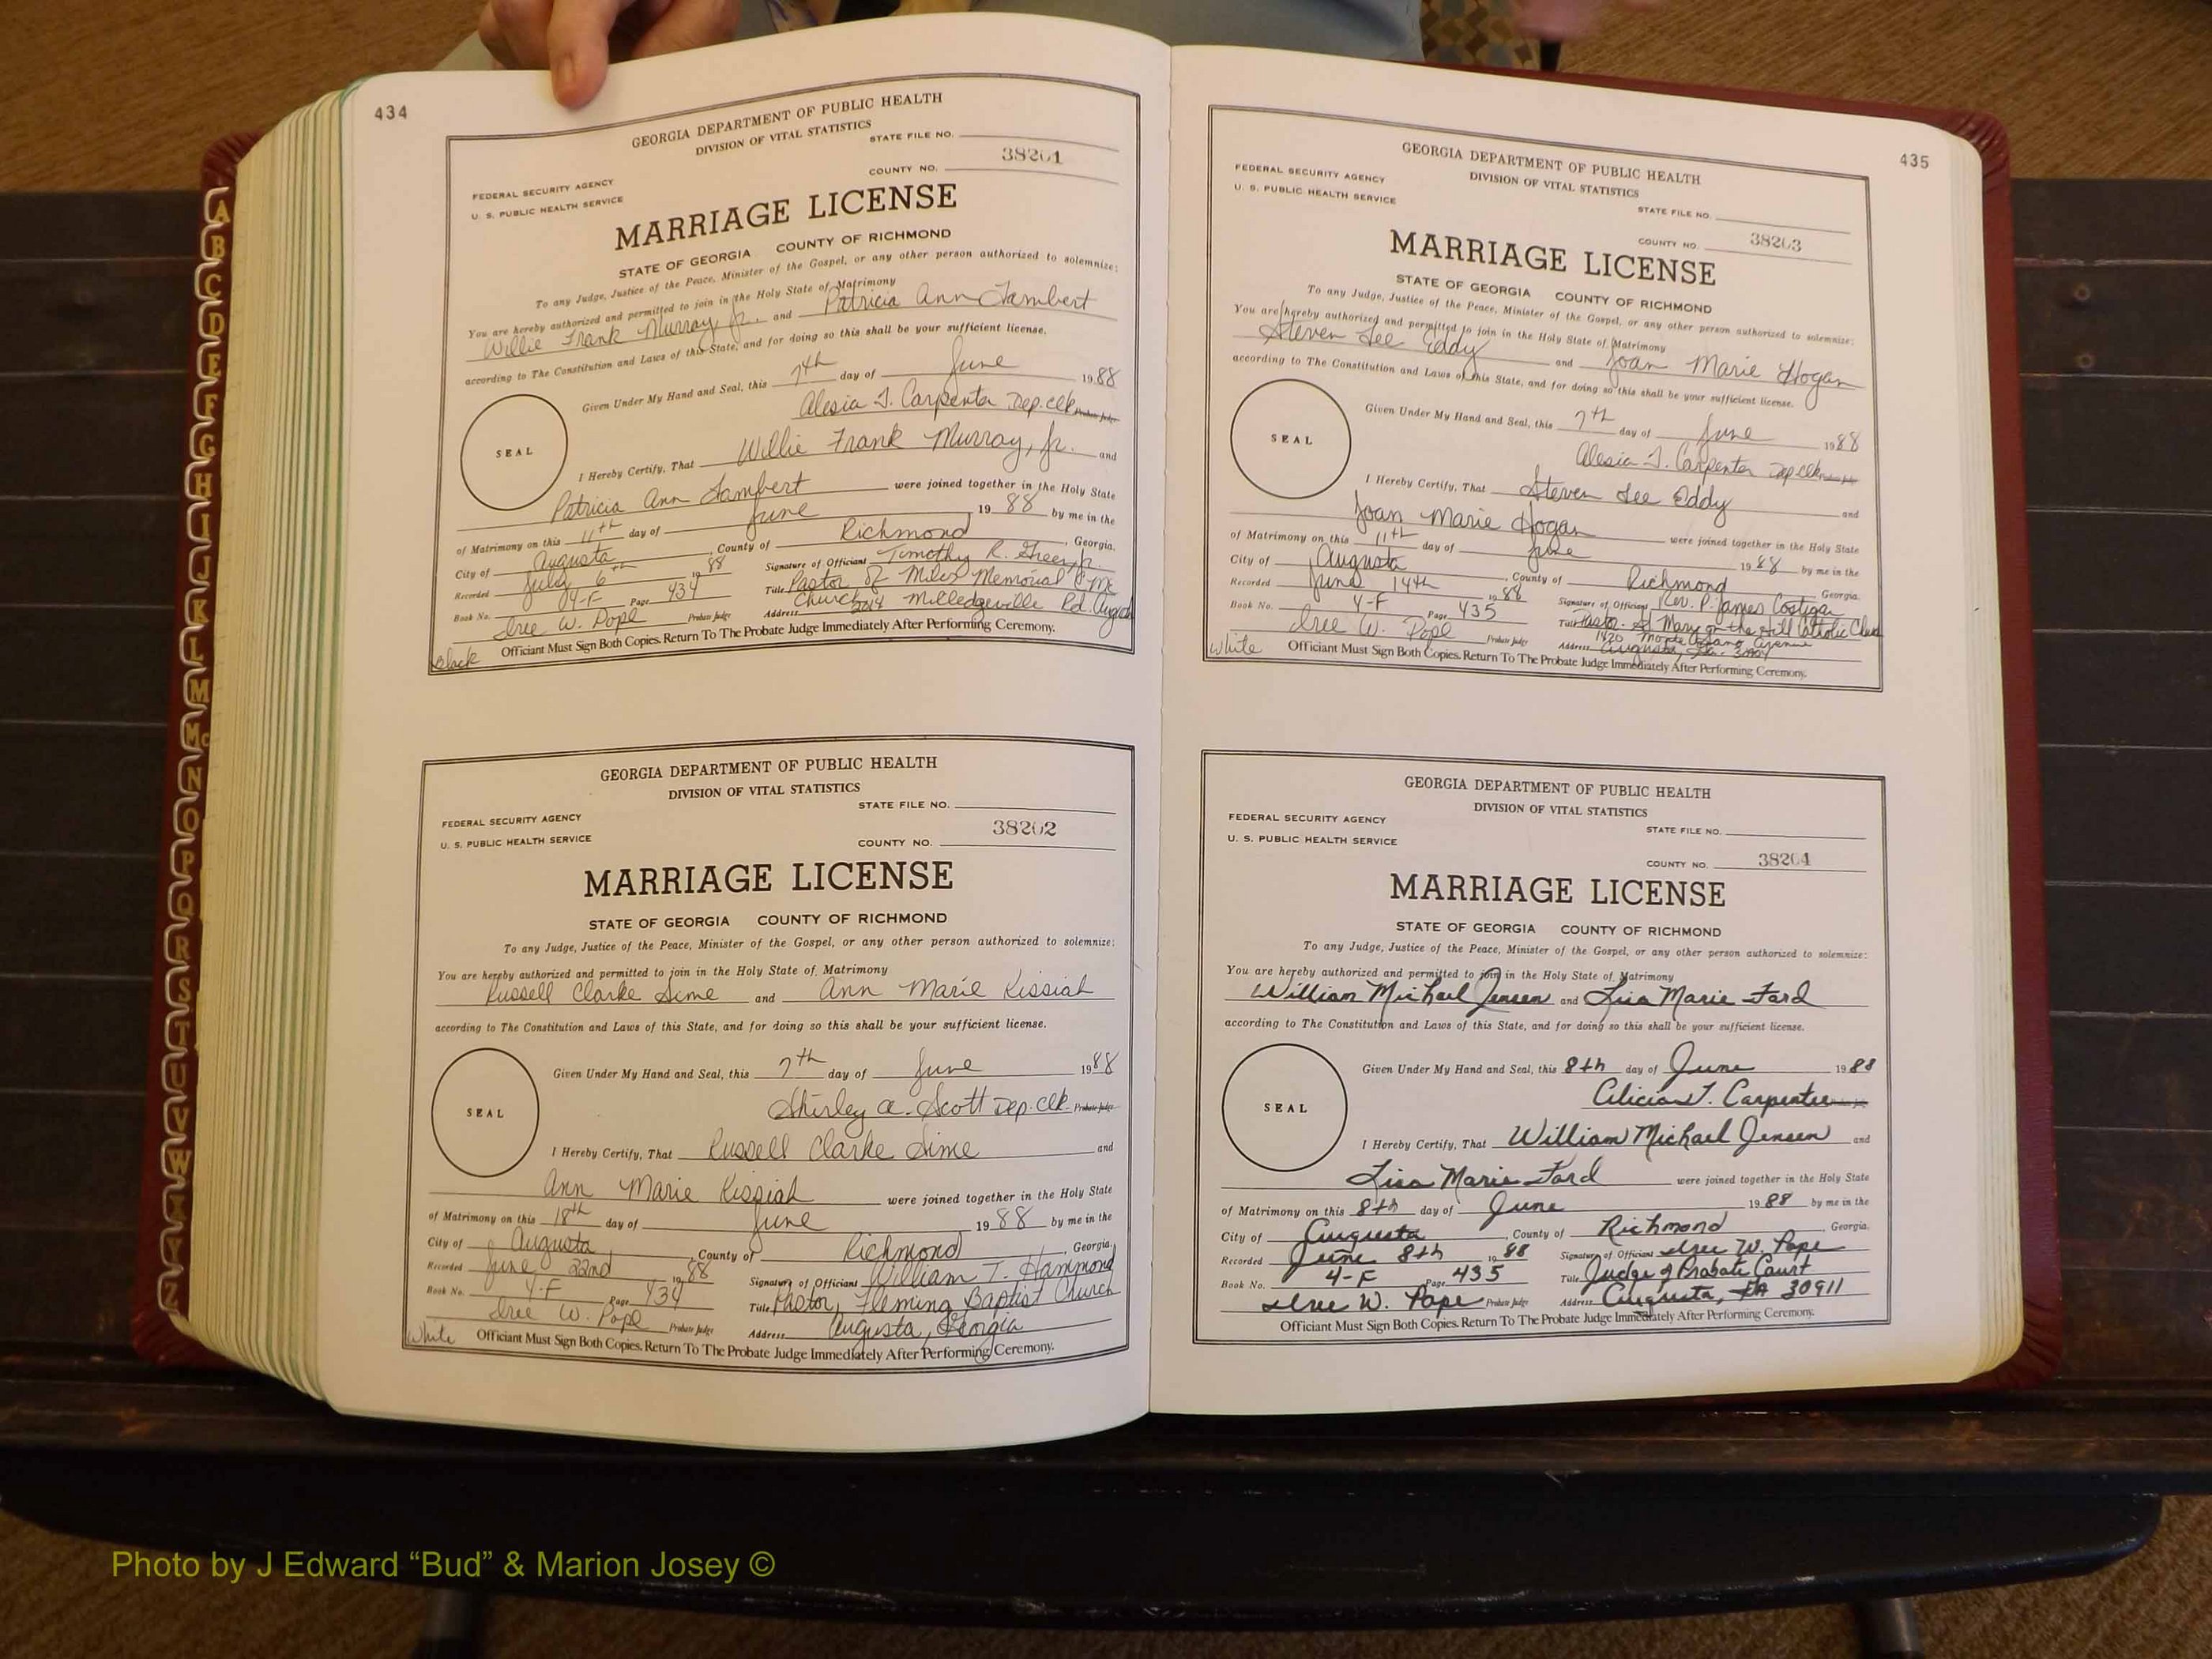 434
GEORGIA DEPARTMENT OF PUBLIC HEALTH
DIVISION OF VITAL STATISTICS
STATE FILE NO.
38201
COUNTY NO.
FEDERAL SECURITY AGENCY
U. S. PUBLIC HEALTH SERVICE
MARRIAGE LICENSE
STATE OF GEORGIA COUNTY OF RICHMOND
To any Judge, Justice of the Peace, Minister of the Gospel, or any other person authorized to solemnize:
You are hereby authorized and permitted to join in the Holy State of Matrimony
Willie Frank Murray Jr. and Patricia Ann Lambert
according to The Constitution and Laws of this State, and for doing so this shall be your sufficient license.
Given Under My Hand and Seal, this 7th day of June 1988
Alesia J. Carpenter Dep. Clk. Probate Judge
SEAL
I Hereby Certify, That Willie Frank Murray, Jr. and
Patricia Ann Lambert were joined together in the Holy State
of Matrimony on this 11th day of June 1988 by me in the
City of Augusta, County of Richmond, Georgia.
Recorded July 6th 1988 Signature of Officiant Timothy R. Green, Jr.
Book No. 4-F Page 434 Title Pastor of Miles Memorial CME
Church
Iree W. Pope Probate Judge Address 2014 Milledgeville Rd. Augusta
Black Officiant Must Sign Both Copies. Return To The Probate Judge Immediately After Performing Ceremony.
GEORGIA DEPARTMENT OF PUBLIC HEALTH
DIVISION OF VITAL STATISTICS
STATE FILE NO.
FEDERAL SECURITY AGENCY
38202
U. S. PUBLIC HEALTH SERVICE COUNTY NO.
MARRIAGE LICENSE
STATE OF GEORGIA COUNTY OF RICHMOND
To any Judge, Justice of the Peace, Minister of the Gospel, or any other person authorized to solemnize:
You are hereby authorized and permitted to join in the Holy State of Matrimony
Russell Clarke Sime and Ann Marie Kissiah
according to The Constitution and Laws of this State, and for doing so this shall be your sufficient license.
Given Under My Hand and Seal, this 7th day of June 1988
Shirley A. Scott Dep. Clk. Probate Judge
SEAL
I Hereby Certify, That Russell Clarke Sime and
Ann Marie Kissiah were joined together in the Holy State
of Matrimony on this 18th day of June 1988 by me in the
City of Augusta, County of Richmond, Georgia.
Recorded June 22nd 1988 Signature of Officiant William T. Hammond
Book No. 4-F Page 434 Title Pastor, Fleming Baptist Church
Iree W. Pope Probate Judge Address Augusta, Georgia
White Officiant Must Sign Both Copies. Return To The Probate Judge Immediately After Performing Ceremony.
435
GEORGIA DEPARTMENT OF PUBLIC HEALTH
DIVISION OF VITAL STATISTICS
FEDERAL SECURITY AGENCY
U. S. PUBLIC HEALTH SERVICE
STATE FILE NO.
COUNTY NO. 38203
MARRIAGE LICENSE
STATE OF GEORGIA COUNTY OF RICHMOND
To any Judge, Justice of the Peace, Minister of the Gospel, or any other person authorized to solemnize:
You are hereby authorized and permitted to join in the Holy State of Matrimony
Steven Lee Eddy and Joan Marie Hogan
according to The Constitution and Laws of this State, and for doing so this shall be your sufficient license.
Given Under My Hand and Seal, this 7th day of June 1988
Alesia J. Carpenter Dep. Clk. Probate Judge
SEAL
I Hereby Certify, That Steven Lee Eddy and
Joan Marie Hogan were joined together in the Holy State
of Matrimony on this 11th day of June 1988 by me in the
City of Augusta, County of Richmond Georgia.
Recorded June 14th 1988 Signature of Officiant Rev. P. James Costigan
Book No. 4-F Page 435 Title Pastor - St. Mary on the Hill Catholic Church
1420 Monte Sano Avenue
Iree W. Pope Probate Judge Address Augusta, Ga. 30904
White Officiant Must Sign Both Copies. Return To The Probate Judge Immediately After Performing Ceremony.
GEORGIA DEPARTMENT OF PUBLIC HEALTH
DIVISION OF VITAL STATISTICS
FEDERAL SECURITY AGENCY
STATE FILE NO.
U. S. PUBLIC HEALTH SERVICE
COUNTY NO. 38204
MARRIAGE LICENSE
STATE OF GEORGIA COUNTY OF RICHMOND
To any Judge, Justice of the Peace, Minister of the Gospel, or any other person authorized to solemnize:
You are hereby authorized and permitted to join in the Holy State of Matrimony
William Michael Jensen and Lisa Marie Ford
according to The Constitution and Laws of this State, and for doing so this shall be your sufficient license.
Given Under My Hand and Seal, this 8th day of June 1988
Alicia J. Carpenter
SEAL
I Hereby Certify, That William Michael Jensen and
Lisa Marie Ford were joined together in the Holy State
of Matrimony on this 8th day of June 1988 by me in the
City of Augusta, County of Richmond, Georgia.
Recorded June 8th 1988 Signature of Officiant Iree W. Pope
Book No. 4-F Page 435 Title Judge of Probate Court
Iree W. Pope Probate Judge Address Augusta, GA 30911
Officiant Must Sign Both Copies. Return To The Probate Judge Immediately After Performing Ceremony.
A
B
C
D
E
F
G
H
I
J
K
L
M
Mc
N
O
P
Q
R
S
T
U
V
W
X
Y
Z
Photo by J Edward “Bud” & Marion Josey ©